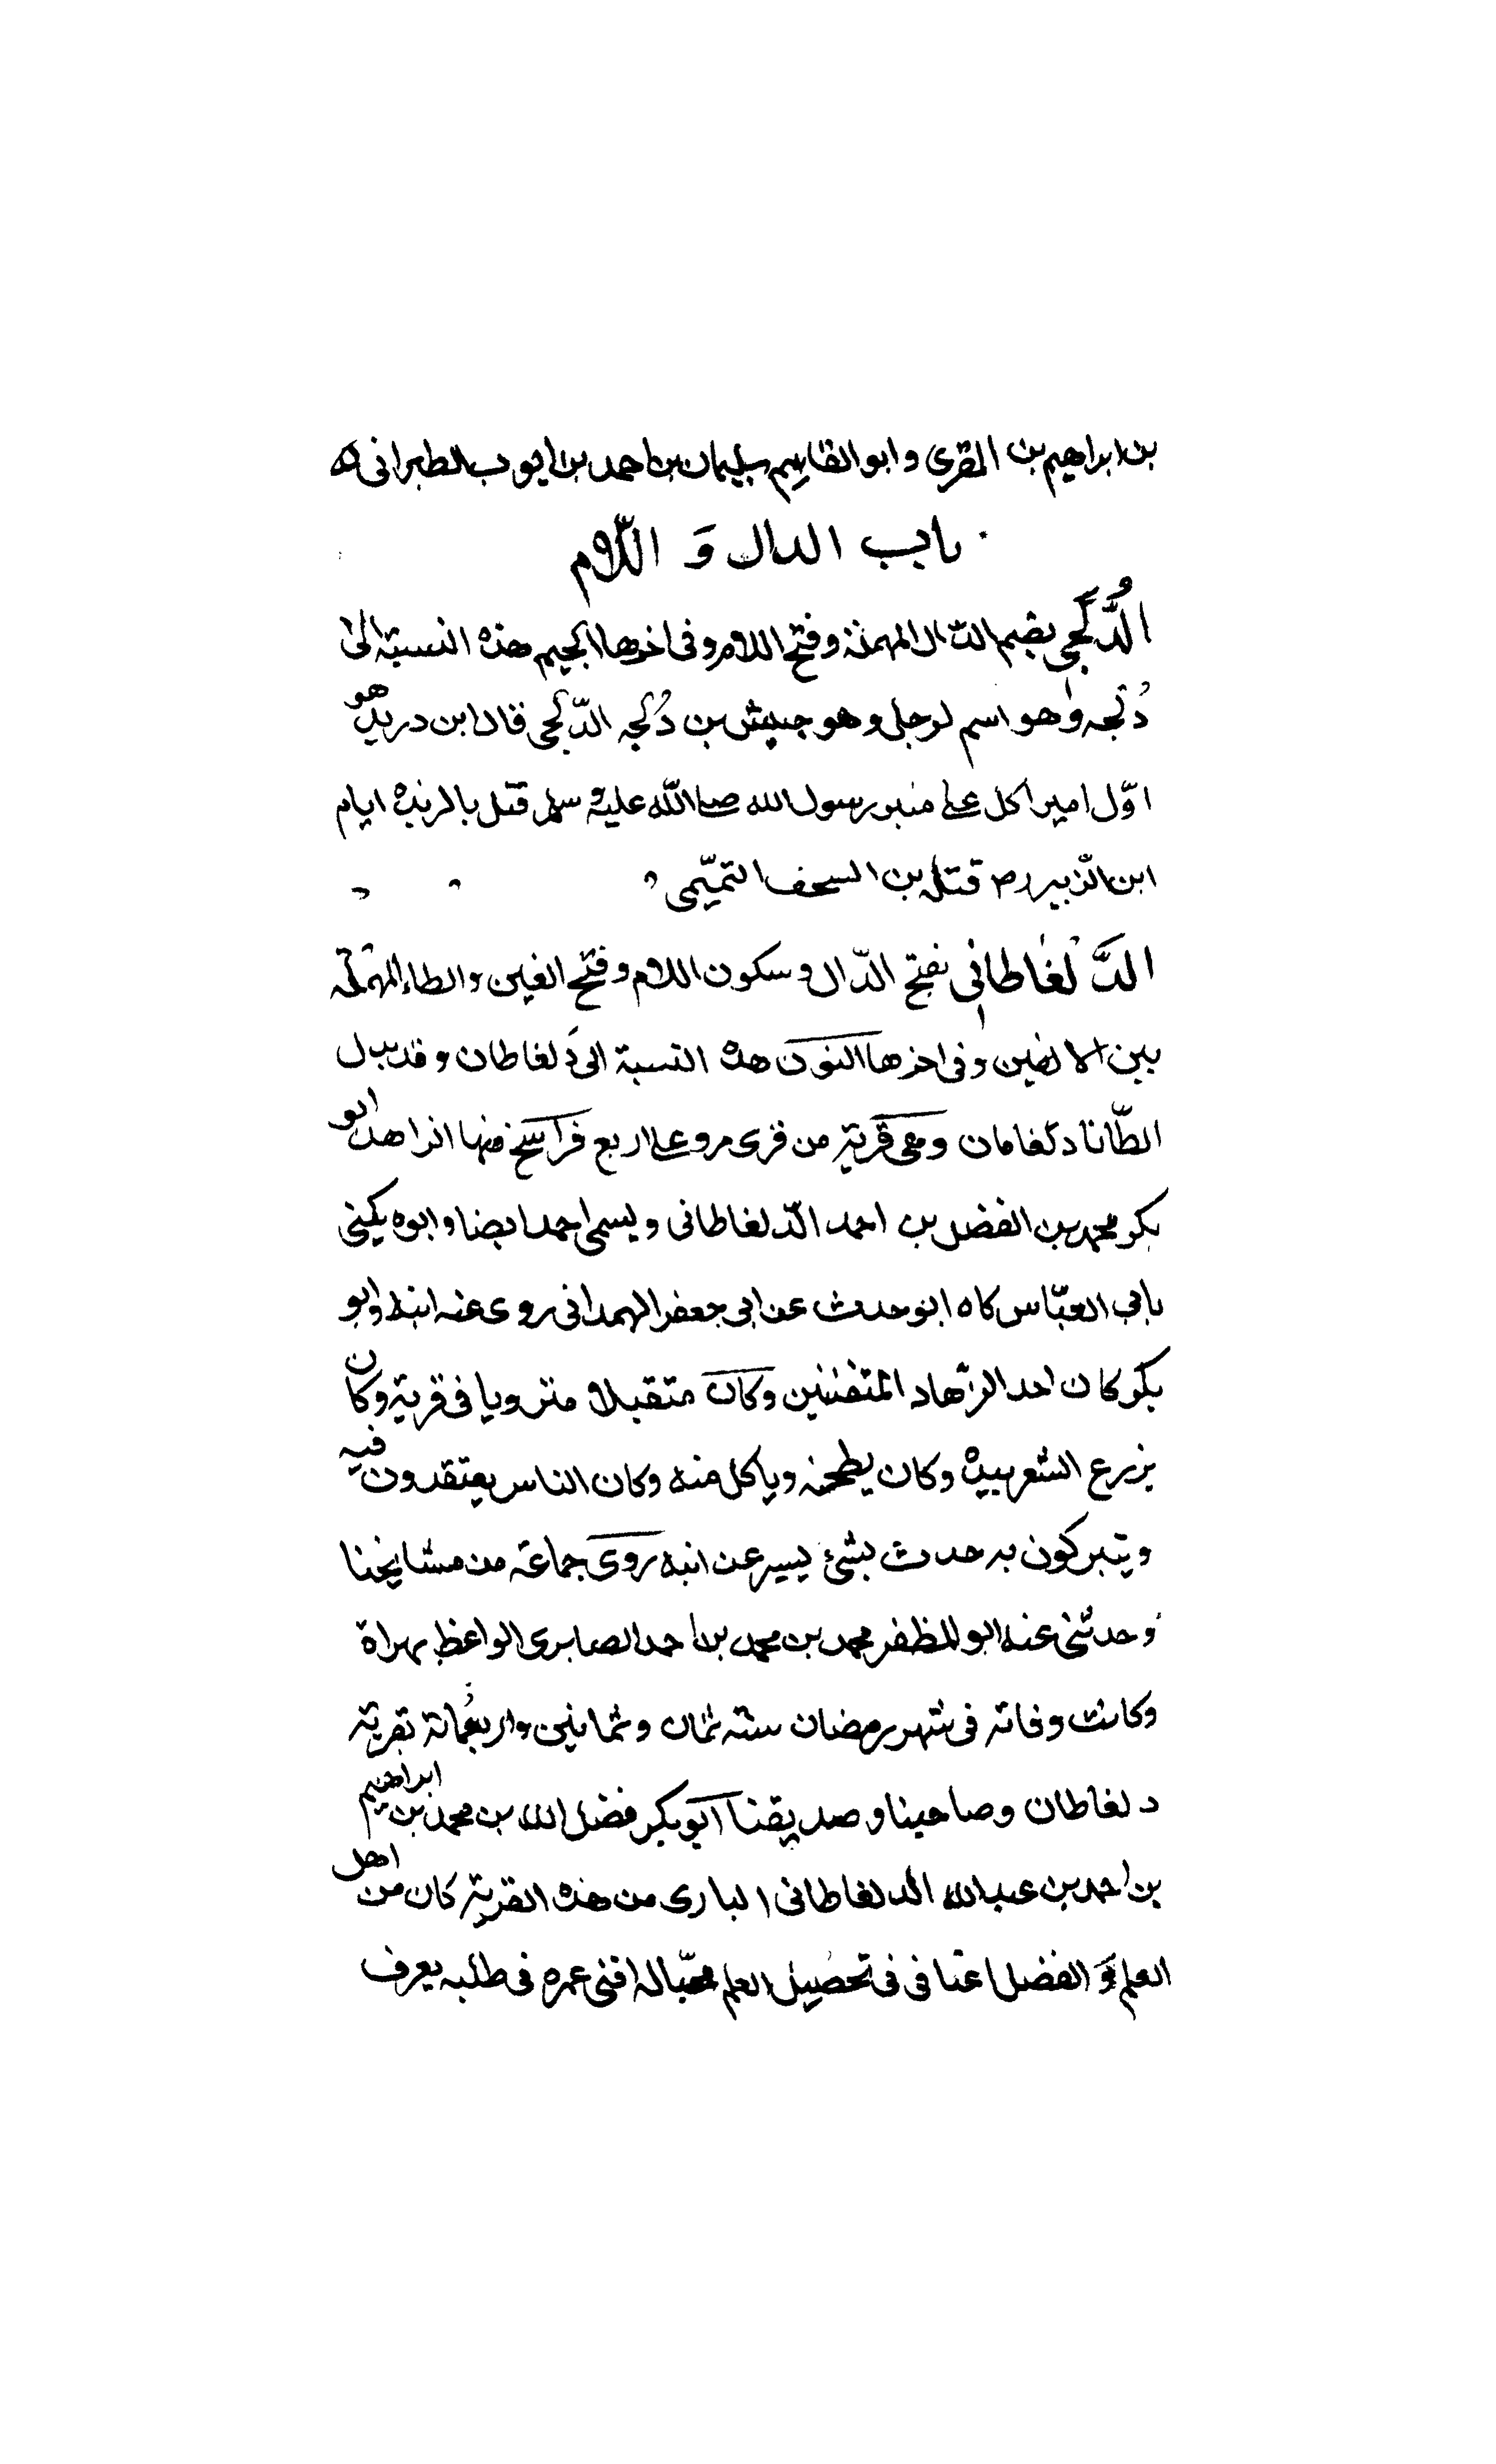 بن ابراهيم بن المقرى وابو القاسم سليمان بن احمد بن ايوب الطبرانى
باب الدال وَ اللّام
الُدَّلَجى بضم الدال المهملة وفتح اللام وفى اخرها الجيم هذه النسبة الى
دُلجه وهو اسم لرجل وهو حبيش بن دُلجه الدّلجى قال ابن دريد هو
اوّل امير اكل على منبر رسول الله صلى الله عليه وسلم قتل بالربذه ايام
ابن الزبير رضه قتله بن السحف التميّمى
الدَّلْغاطانى بفتح الدّال وسكون اللام وفتح الغين والطاء المهملة
بين الالفين وفى اخرها النون هذه النسبة الى دَلغاطان وقد يبدل
الطّا نا دلغانان وهى قرية من قرى مرو على اربع فراسخ منها الزاهد ابو
بكر محمد بن الفضل بن احمد الدّلغاطانى ويسمى احمد ايضا وابوه يكنى
بابى العبّاس كاه ابنو حدث عن ابى جعفر الهمدانى روى عنه ابنه وابو
بكر كان احد الزّهاد المتفننين وكان متقبلا منزويا فى قرية وكان
يزرع الشعر بيده وكان يطحنه وياكل منه وكان الناس يعتقدون فيه
ويتبركون به حدث بشئ يسير عن ابيه روى جماعة من مشايخنا
وحدثنى عنه ابو المظفر محمد بن محمد بن احمد الصابرى الواعظ بهراة
وكانت وفاته فى شهر رمضان سنة ثمان وثمانين واربعُمائة بقرية
دلغاطان وصاحبنا وصديقنا ابو بكر فضل الله بن محمد بن ابراهيم
بن احمد بن عبد الله الدلغاطانى البارى من هذه القرية كان من اهل
العلم وَ الفضل اعتا فى فى تحصيل العلم محبّا له افنى عمره فى طلبه يعرف